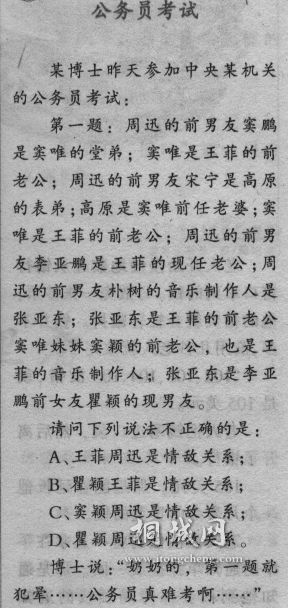 公务员考试
某博士昨天参加中央某机关
的公务员考试：
第一题：周迅的前男友窦鹏
是窦唯的堂弟；窦唯是王菲的前
老公；周迅的前男友宋宁是高原
的表弟；高原是窦唯前任老婆；窦
唯是王菲的前老公；周迅的前男
友李亚鹏是王菲的现任老公；周
迅的前男友朴树的音乐制作人是
张亚东；张亚东是王菲的前老公
窦唯妹妹窦颖的前老公，也是王
菲的音乐制作人；张亚东是李亚
鹏前女友瞿颖的现男友。
请问下列说法不正确的是：
A、王菲周迅是情敌关系；
B、瞿颖王菲是情敌关系；
C、窦颖周迅是情敌关系；
D、瞿颖周迅是情敌关系。
博士说：“奶奶的，第一题就
犯晕……公务员真难考啊……”
相找网
www.itongcheng.com